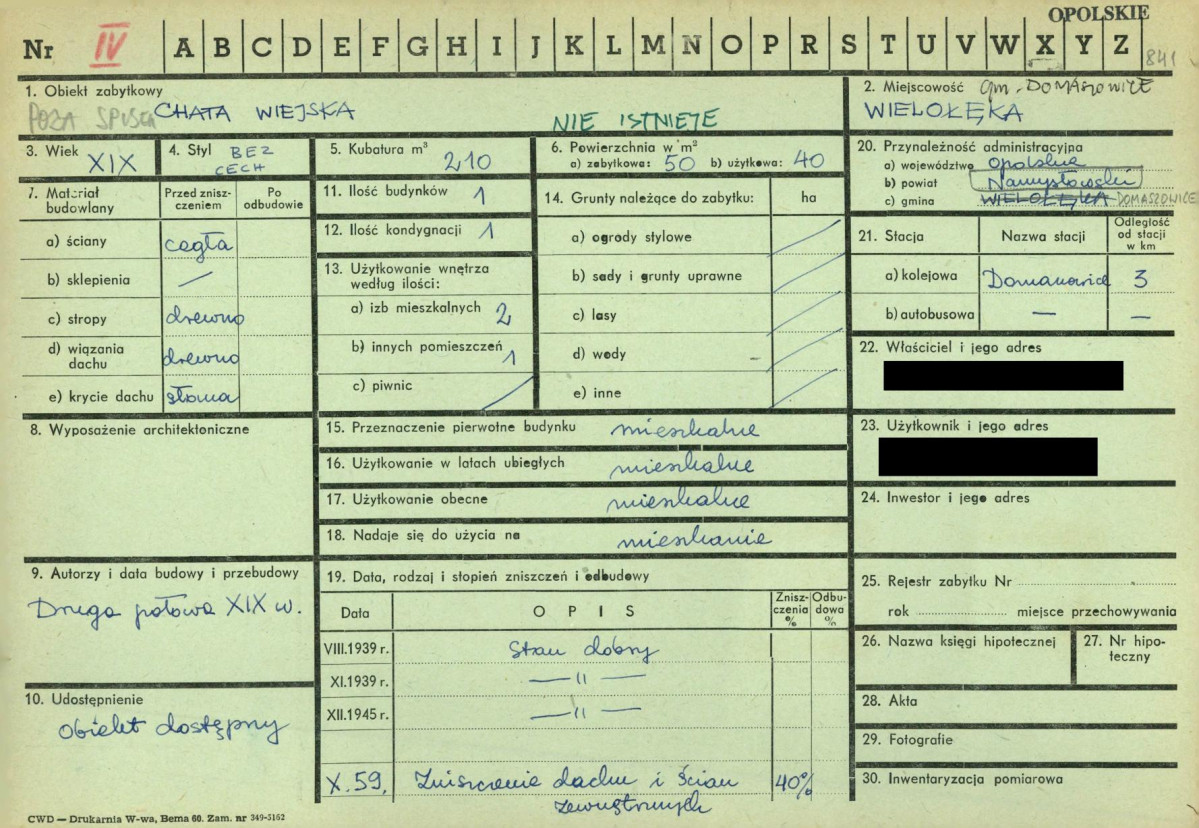 OPOLSKIE
Nr IV A B C D E F G H I J K L M N O P R S T U V W X Y Z 841
1. Obiekt zabytkowy
POZA SPISEM CHATA WIEJSKA
NIE ISTNIEJE
2. Miejscowość gm. DOMASZOWICE
WIELOŁĘKA
3. Wiek XIX
4. Styl BEZ CECH
5. Kubatura m³ 210
6. Powierzchnia w m²
a) zabytkowa: 50 b) użytkowa: 40
20. Przynależność administracyjna
a) województwo opolskie
b) powiat Namysłowski
c) gmina WIELOŁĘKA DOMASZOWICE
7. Materiał budowlany
Przed zniszczeniem
Po odbudowie
a) ściany cegła
b) sklepienia —
c) stropy drewno
d) wiązania dachu drewno
e) krycie dachu słoma
11. Ilość budynków 1
12. Ilość kondygnacji 1
13. Użytkowanie wnętrza
według ilości:
a) izb mieszkalnych 2
b) innych pomieszczeń 1
c) piwnic /
14. Grunty należące do zabytku: ha
a) ogrody stylowe /
b) sady i grunty uprawne /
c) lasy /
d) wody /
e) inne /
21. Stacja
Nazwa stacji
Odległość od stacji w km
a) kolejowa Domanowice 3
b) autobusowa — —
22. Właściciel i jego adres
8. Wyposażenie architektoniczne
15. Przeznaczenie pierwotne budynku mieszkalne
16. Użytkowanie w latach ubiegłych mieszkalne
17. Użytkowanie obecne mieszkalne
18. Nadaje się do użycia na mieszkanie
23. Użytkownik i jego adres
24. Inwestor i jego adres
9. Autorzy i data budowy i przebudowy
Druga połowa XIX w.
10. Udostępnienie
Obiekt dostępny
19. Data, rodzaj i stopień zniszczeń i odbudowy
Data
OPIS
Zniszczenia %
Odbudowa %
VIII.1939 r. Stan dobry
XI.1939 r. — " —
XII.1945 r. — " —
X.59. Zniszczenie dachu i ścian 40%
zewnętrznych
25. Rejestr zabytku Nr
rok miejsce przechowywania
26. Nazwa księgi hipotecznej
27. Nr hipoteczny
28. Akta
29. Fotografie
30. Inwentaryzacja pomiarowa
CWD — Drukarnia W-wa, Bema 60. Zam. nr 349-5162